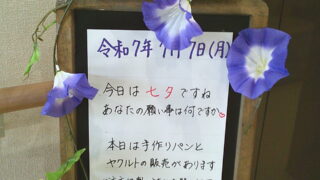 令和7年7月7日(月)
今日は七夕ですね
あなたの願い事は何ですか♡
本日は手作りパンと
ヤクルトの販売があります